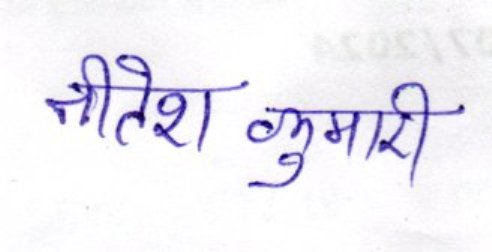 नीतेश कुमारी